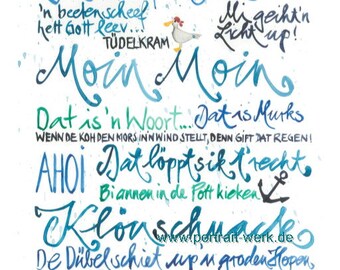 'n beeten scheef
hett Gott leev...
Mi geiht'n
Licht up!
TÜDELKRAM
Moin Moin
Dat is 'n Woort...
Dat is Murks
WENN DE KOH DEN MORS IN'N WIND STELLT, DENN GIFT DAT REGEN!
AHOI
Dat löppt sik t'recht
Bi annen in de Pott kieken
Klönschnack
www.portrait-werk.de
De Dübel schiet up'n groden Hopen